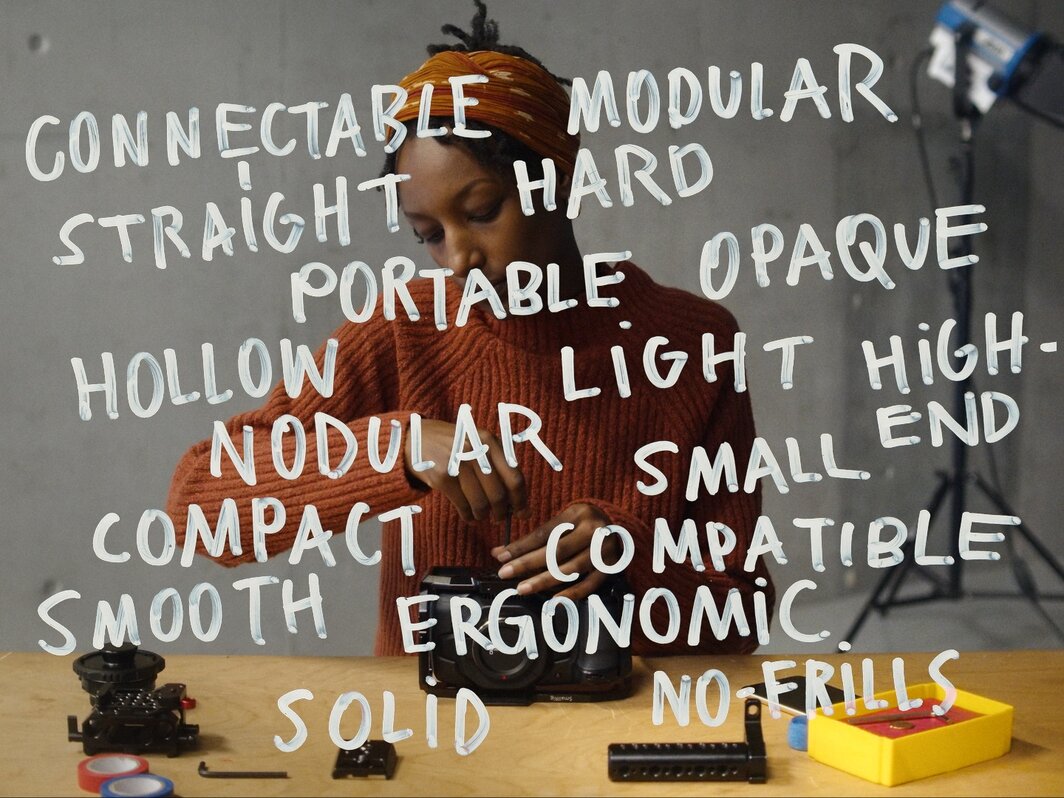 CONNECTABLE MODULAR
STRAIGHT HARD
PORTABLE OPAQUE
HOLLOW LIGHT HIGH-
NODULAR END
SMALL
COMPACT COMPATIBLE
SMOOTH ERGONOMIC
SOLID NO-FRILLS
SmallRig